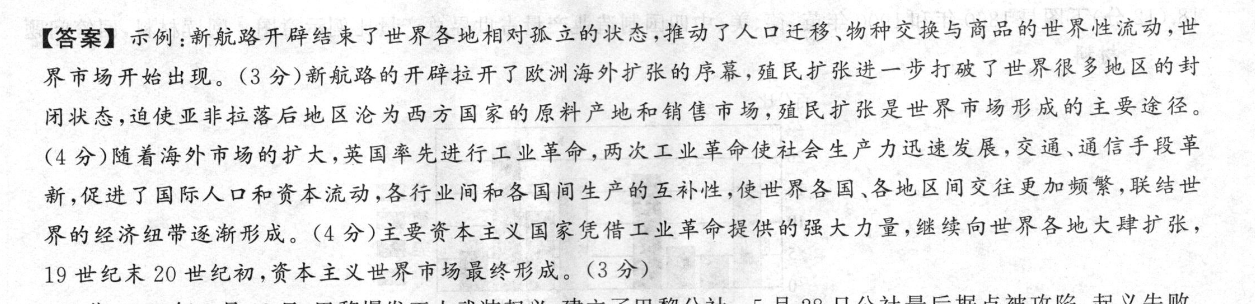 【答案】示例:新航路开辟结束了世界各地相对孤立的状态,推动了人口迁移、物种交换与商品的世界性流动,世
界市场开始出现。(3分)新航路的开辟拉开了欧洲海外扩张的序幕,殖民扩张进一步打破了世界很多地区的封
闭状态,迫使亚非拉落后地区沦为西方国家的原料产地和销售市场,殖民扩张是世界市场形成的主要途径。
(4分)随着海外市场的扩大,英国率先进行工业革命,两次工业革命使社会生产力迅速发展,交通、通信手段革
新,促进了国际人口和资本流动,各行业间和各国间生产的互补性,使世界各国、各地区间交往更加频繁,联结世
界的经济纽带逐渐形成。(4分)主要资本主义国家凭借工业革命提供的强大力量,继续向世界各地大肆扩张,
19世纪末20世纪初,资本主义世界市场最终形成。(3分)